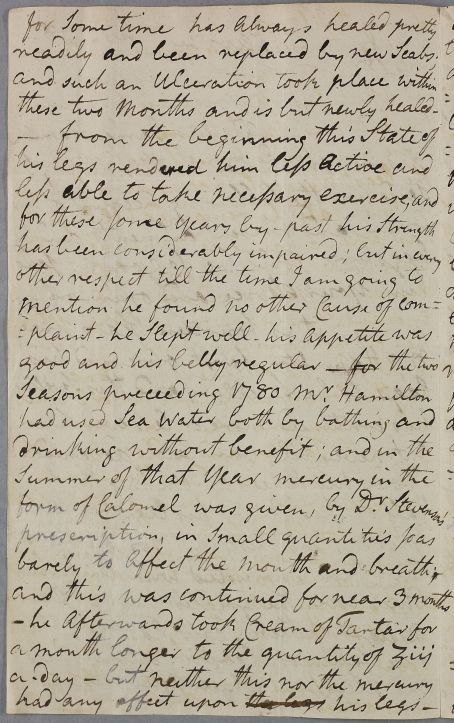 for Some time has always healed pretty
readily and been replaced by new Scabs.
and such an Ulceration took place within
these two Months and is but newly healed-
- from the beginning this State of
his legs rendered him less active and
less able to take necessary exercise, and
for these some years by-past his strength
has been considerably impaired; but in every
other respect till the time I am going to
mention he found no other Cause of Com=
=plaint - he Slept well - his appetite was
good and his belly regular - for the two
Seasons preceeding 1780 Mr. Hamilton
had used Sea Water both by bathing and
drinking without benefit; and in the
Summer of that Year mercury in the
form of Calomel was given, by Dr. Stevenson's
prescription, in Small quantities so as
barely to affect the mouth and breath,
and this was continued for near 3 months
- he Afterwards took Cream of Tartar for
a month longer to the quantity of ʒiij
a-day - but neither this nor the mercury
had any effect upon the legs his legs -